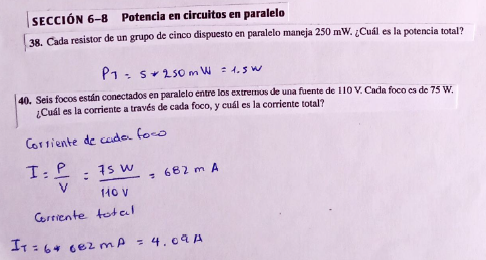 SECCIÓN 6–8 Potencia en circuitos en paralelo
38. Cada resistor de un grupo de cinco dispuesto en paralelo maneja 250 mW. ¿Cuál es la potencia total?
PT = 5 * 250 mW = 1.5 W
40. Seis focos están conectados en paralelo entre los extremos de una fuente de 110 V. Cada foco es de 75 W.
¿Cuál es la corriente a través de cada foco, y cuál es la corriente total?
Corriente de cada foco
I = P/V = 75 W/110 V = 682 mA
Corriente total
IT = 6 * 682 mA = 4.09 A